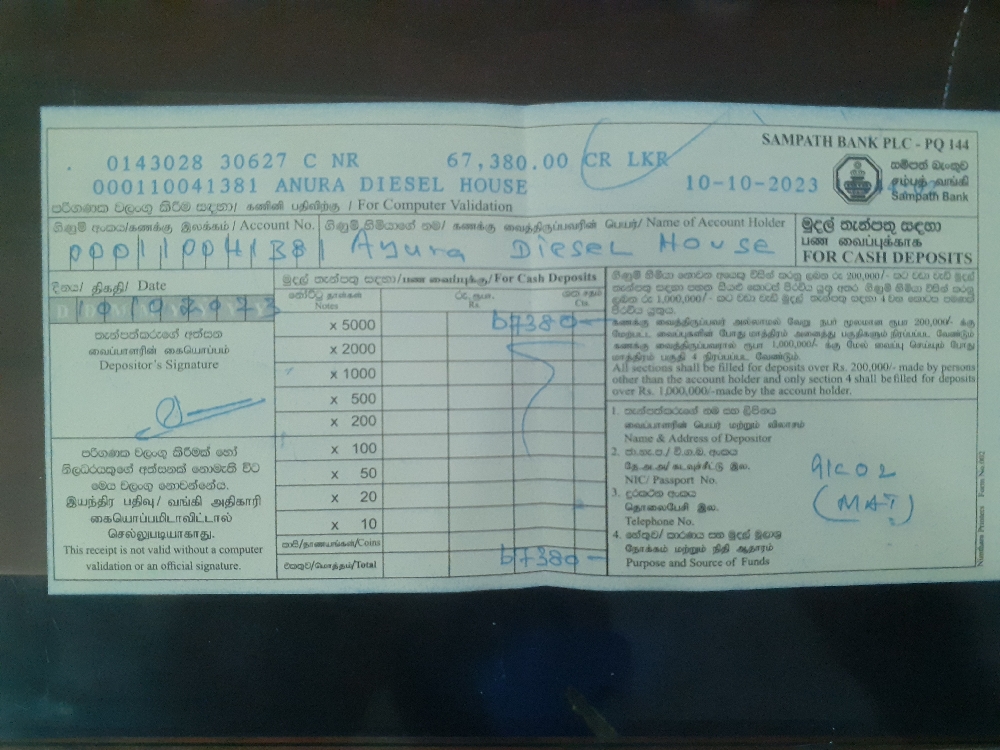 SAMPATH BANK PLC - PQ 144
0143028 30627 C NR 67,380.00 CR LKR
000110041381 ANURA DIESEL HOUSE 10-10-2023
සම්පත් බැංකුව
சம்பத் வங்கி
Sampath Bank
පරිගණක වලංගු කිරීම සඳහා / கணினி பதிவிற்கு / For Computer Validation
ගිණුම් අංකය/கணக்கு இலக்கம் / Account No.
000110041381
ගිණුම් හිමියාගේ නම/ கணக்கு வைத்திருப்பவரின் பெயர்/ Name of Account Holder
Ayura Diesel House
මුදල් තැන්පතු සඳහා
பண வைப்புக்காக
FOR CASH DEPOSITS
දිනය/ திகதி/ Date
මුදල් තැන්පතු සඳහා/பண வைப்புக்கு/For Cash Deposits
නෝට්ටු நாள்கள் Notes
රු. ரூபா. Rs.
ශත சதம் Cts.
තැන්පත්කරුගේ අත්සන
வைப்பாளரின் கையொப்பம்
Depositor's Signature
x 5000 67380 —
x 2000
x 1000
x 500
x 200
x 100
x 50
x 20
x 10
කාසි/நாணயங்கள்/Coins
එකතුව/மொத்தம்/Total 67380 —
පරිගණක වලංගු කිරීමක් හෝ
නිලධරයකුගේ අත්සනක් නොමැති විට
මෙය වලංගු නොවන්නේය.
இயந்திர பதிவு/ வங்கி அதிகாரி
கையொப்பமிடாவிட்டால்
செல்லுபடியாகாது.
This receipt is not valid without a computer
validation or an official signature.
கணக்கு வைத்திருப்பவர் அல்லாமல் வேறு நபர் மூலமான ரூபா 200,000/- க்கு
மேற்பட்ட வைப்புகளின் போது மாத்திரம் அனைத்து பகுதிகளும் நிரப்பப்பட வேண்டும்
கணக்கு வைத்திருப்பவரால் ரூபா 1,000,000/- க்கு மேல் வைப்பு செய்யும் போது
மாத்திரம் பகுதி 4 நிரப்பப்பட வேண்டும்.
All sections shall be filled for deposits over Rs. 200,000/- made by persons
other than the account holder and only section 4 shall be filled for deposits
over Rs. 1,000,000/-made by the account holder.
1. තැන්පත්කරුගේ නම සහ ලිපිනය
வைப்பாளரின் பெயர் மற்றும் விலாசம்
Name & Address of Depositor
2. ජා.හැ.ප./ වි.ග.බ. අංකය
தே.அ.அ/ கடவுச்சீட்டு இல.
NIC/ Passport No.
3. දුරකථන අංකය
தொலைபேசி இல.
Telephone No.
4. හේතුව/ කාරණය සහ මුදල් මූලාශ්‍ර
நோக்கம் மற்றும் நிதி ஆதாரம்
Purpose and Source of Funds
(MAT)